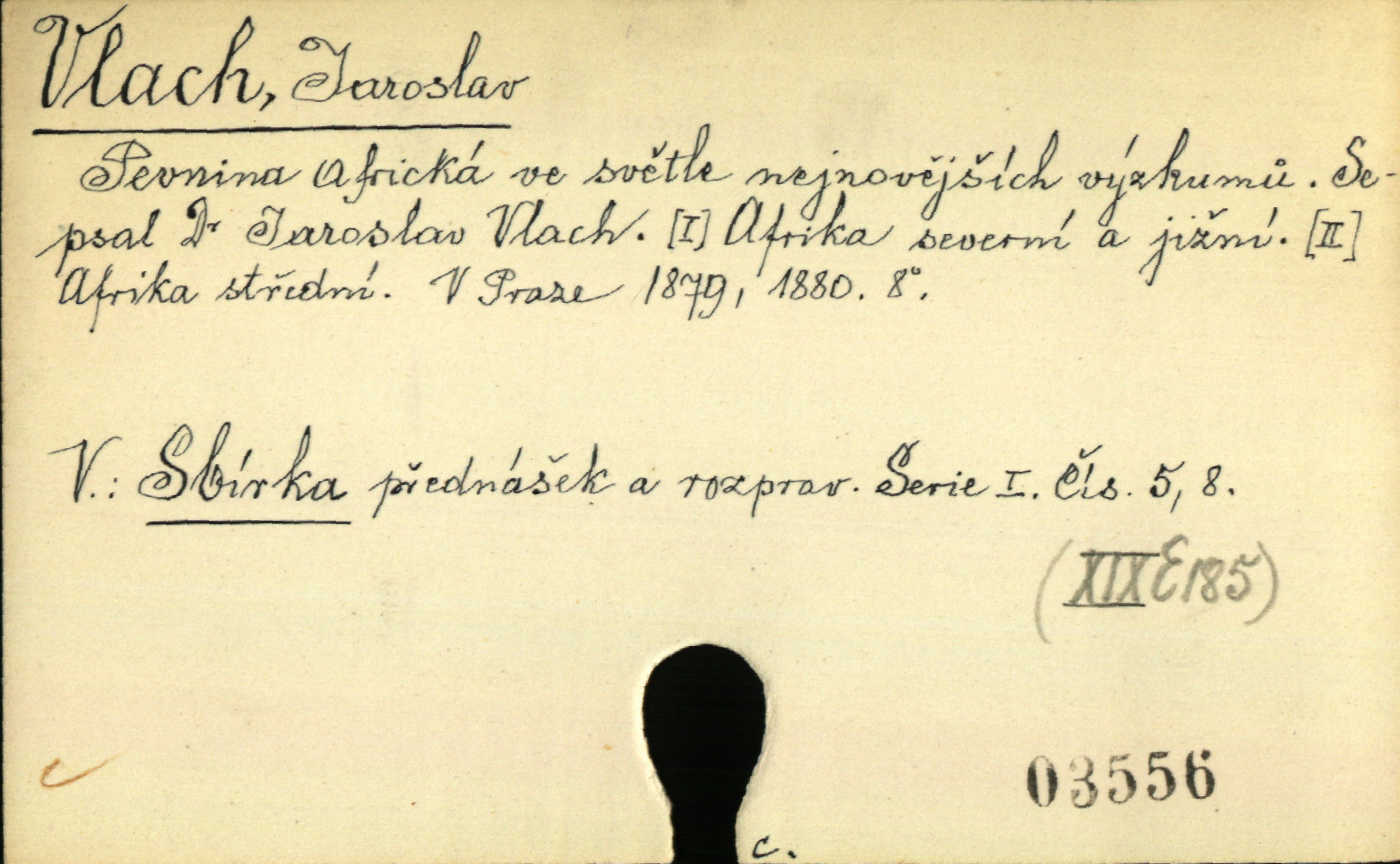 Vlach, Jaroslav
Pevnina Africká ve světle nejnovějších výzkumů. Se-
psal Dr Jaroslav Vlach. [I] Afrika severní a jižní. [II]
Afrika střední. V Praze 1879, 1880. 8°.
V.: Sbírka přednášek a rozprav. Serie I. Čís. 5, 8.
(XIX E 185)
03556
c.